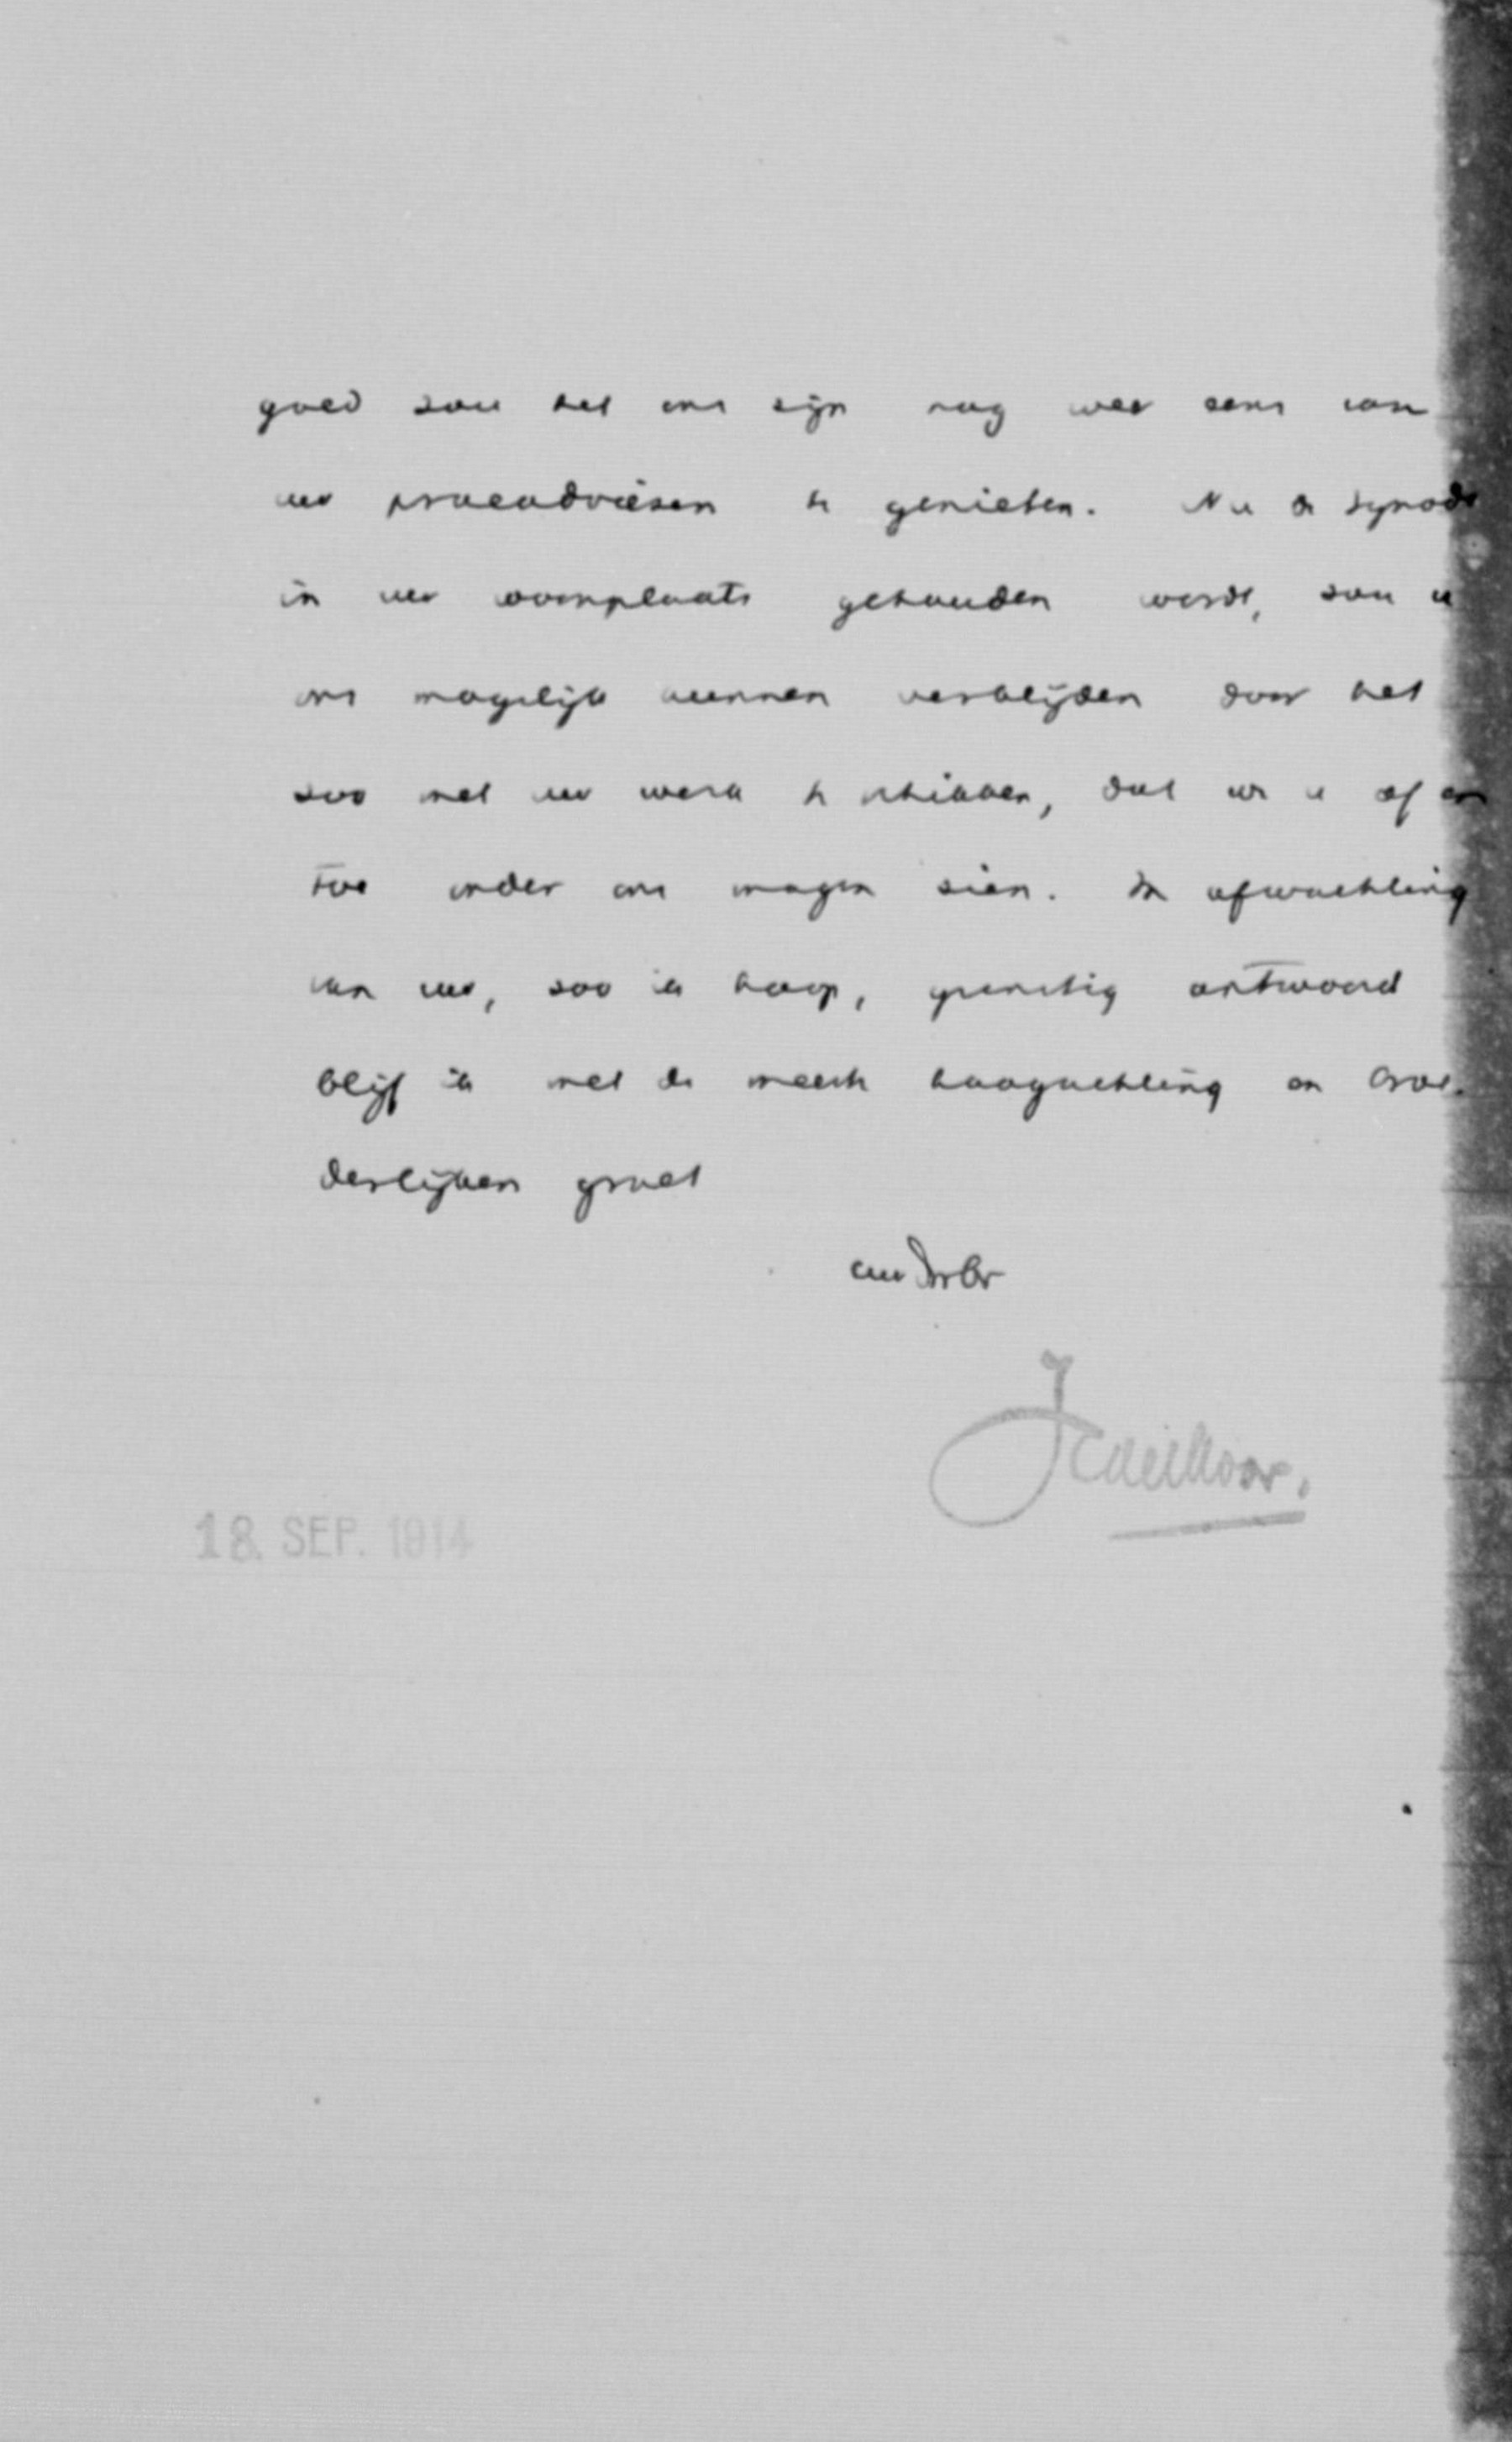 goed zou het ons zijn nog weer eens van
uw praeadviezen te genieten. Nu de Synode
in uw woonplaats gehouden wordt, zou u
ons mogelijk kunnen verblijden door het
zoo met uw werk te schikken, dat we u af en
toe onder ons mogen zien. In afwachting
van uw, zoo ik hoop, gunstig antwoord
blijf ik met de meeste hoogachting en broe-
derlijken groet
uw dw br
18. SEP. 1914